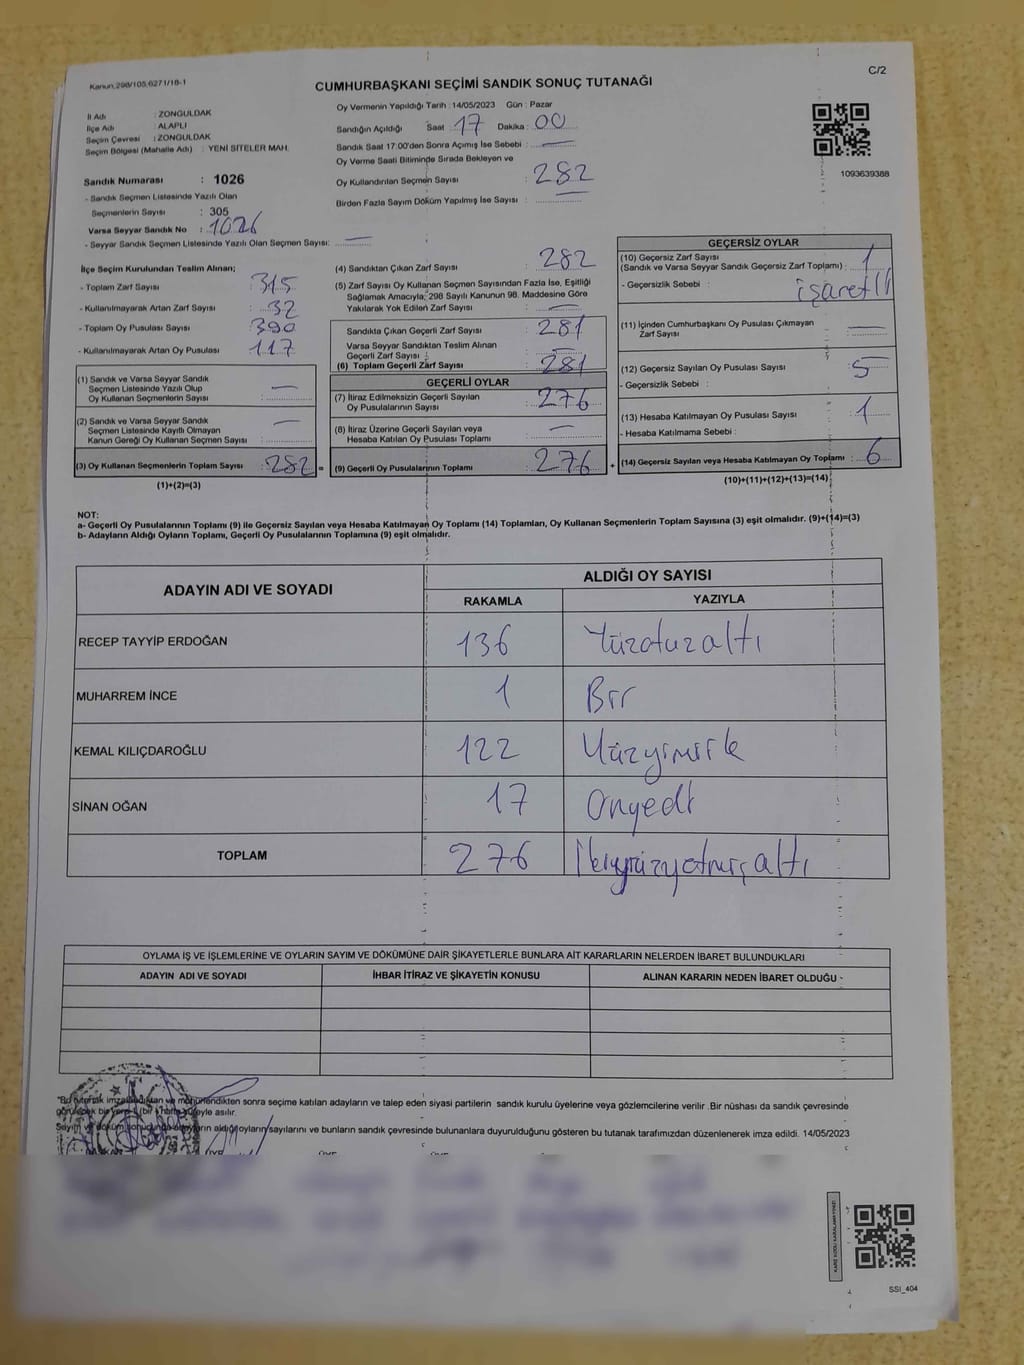 Kanun:298/105,6271/18-1
C/2
CUMHURBAŞKANI SEÇİMİ SANDIK SONUÇ TUTANAĞI
İl Adı : ZONGULDAK
İlçe Adı : ALAPLI
Seçim Çevresi : ZONGULDAK
Seçim Bölgesi (Mahalle Adı) : YENİ SİTELER MAH.
Sandık Numarası : 1026
- Sandık Seçmen Listesinde Yazılı Olan
Seçmenlerin Sayısı : 305
Varsa Seyyar Sandık No : 1026
- Seyyar Sandık Seçmen Listesinde Yazılı Olan Seçmen Sayısı: —
Oy Vermenin Yapıldığı Tarih : 14/05/2023 Gün : Pazar
Sandığın Açıldığı Saat : 17 Dakika : 00
Sandık Saat 17:00'den Sonra Açımış İse Sebebi : —
Oy Verme Saati Bitiminde Sırada Bekleyen ve
Oy Kullandırılan Seçmen Sayısı : 282
Birden Fazla Sayım Döküm Yapılmış İse Sayısı : —
1093639388
İlçe Seçim Kurulundan Teslim Alınan;
- Toplam Zarf Sayısı : 315
- Kullanılmayarak Artan Zarf Sayısı : 32
- Toplam Oy Pusulası Sayısı : 390
- Kullanılmayarak Artan Oy Pusulası : 117
(1) Sandık ve Varsa Seyyar Sandık
Seçmen Listesinde Yazılı Olup
Oy Kullanan Seçmenlerin Sayısı : —
(2) Sandık ve Varsa Seyyar Sandık
Seçmen Listesinde Kayıtlı Olmayan
Kanun Gereği Oy Kullanan Seçmen Sayısı : —
(3) Oy Kullanan Seçmenlerin Toplam Sayısı : 282 =
(1)+(2)=(3)
(4) Sandıktan Çıkan Zarf Sayısı : 282
(5) Zarf Sayısı Oy Kullanan Seçmen Sayısından Fazla İse, Eşitliği
Sağlamak Amacıyla, 298 Sayılı Kanunun 98. Maddesine Göre
Yakılarak Yok Edilen Zarf Sayısı : —
Sandıkta Çıkan Geçerli Zarf Sayısı : 281
Varsa Seyyar Sandıktan Teslim Alınan
Geçerli Zarf Sayısı : —
(6) Toplam Geçerli Zarf Sayısı : 281
GEÇERLİ OYLAR
(7) İtiraz Edilmeksizin Geçerli Sayılan
Oy Pusulalarının Sayısı : 276
(8) İtiraz Üzerine Geçerli Sayılan veya
Hesaba Katılan Oy Pusulası Toplamı : —
(9) Geçerli Oy Pusulalarının Toplamı : 276 +
GEÇERSİZ OYLAR
(10) Geçersiz Zarf Sayısı
(Sandık ve Varsa Seyyar Sandık Geçersiz Zarf Toplamı) : 1
- Geçersizlik Sebebi : işaretli
(11) İçinden Cumhurbaşkanı Oy Pusulası Çıkmayan
Zarf Sayısı : —
(12) Geçersiz Sayılan Oy Pusulası Sayısı : 5
- Geçersizlik Sebebi :
(13) Hesaba Katılmayan Oy Pusulası Sayısı : 1
- Hesaba Katılmama Sebebi :
(14) Geçersiz Sayılan veya Hesaba Katılmayan Oy Toplamı : 6
(10)+(11)+(12)+(13)=(14)
NOT:
a- Geçerli Oy Pusulalarının Toplamı (9) ile Geçersiz Sayılan veya Hesaba Katılmayan Oy Toplamı (14) Toplamları, Oy Kullanan Seçmenlerin Toplam Sayısına (3) eşit olmalıdır. (9)+(14)=(3)
b- Adayların Aldığı Oyların Toplamı, Geçerli Oy Pusulalarının Toplamına (9) eşit olmalıdır.
ADAYIN ADI VE SOYADI
ALDIĞI OY SAYISI
RAKAMLA YAZIYLA
RECEP TAYYİP ERDOĞAN 136 Yüzotuzaltı
MUHARREM İNCE 1 Bir
KEMAL KILIÇDAROĞLU 122 Yüzyirmiik
SİNAN OĞAN 17 Onyedi
TOPLAM 276 İkiyüzyetmişaltı
OYLAMA İŞ VE İŞLEMLERİNE VE OYLARIN SAYIM VE DÖKÜMÜNE DAİR ŞİKAYETLERLE BUNLARA AİT KARARLARIN NELERDEN İBARET BULUNDUKLARI
ADAYIN ADI VE SOYADI İHBAR İTİRAZ VE ŞİKAYETİN KONUSU ALINAN KARARIN NEDEN İBARET OLDUĞU
"Bu tutanak imzalandıktan ve mühürlendikten sonra seçime katılan adayların ve talep eden siyasi partilerin sandık kurulu üyelerine veya gözlemcilerine verilir .Bir nüshası da sandık çevresinde
görülebilecek bir yere 1 (bir) hafta süreyle asılır.
Sayım ve döküm sonucunda adayların aldığı oyların sayılarını ve bunların sandık çevresinde bulunanlara duyurulduğunu gösteren bu tutanak tarafımızdan düzenlenerek imza edildi. 14/05/2023
SSİ_404